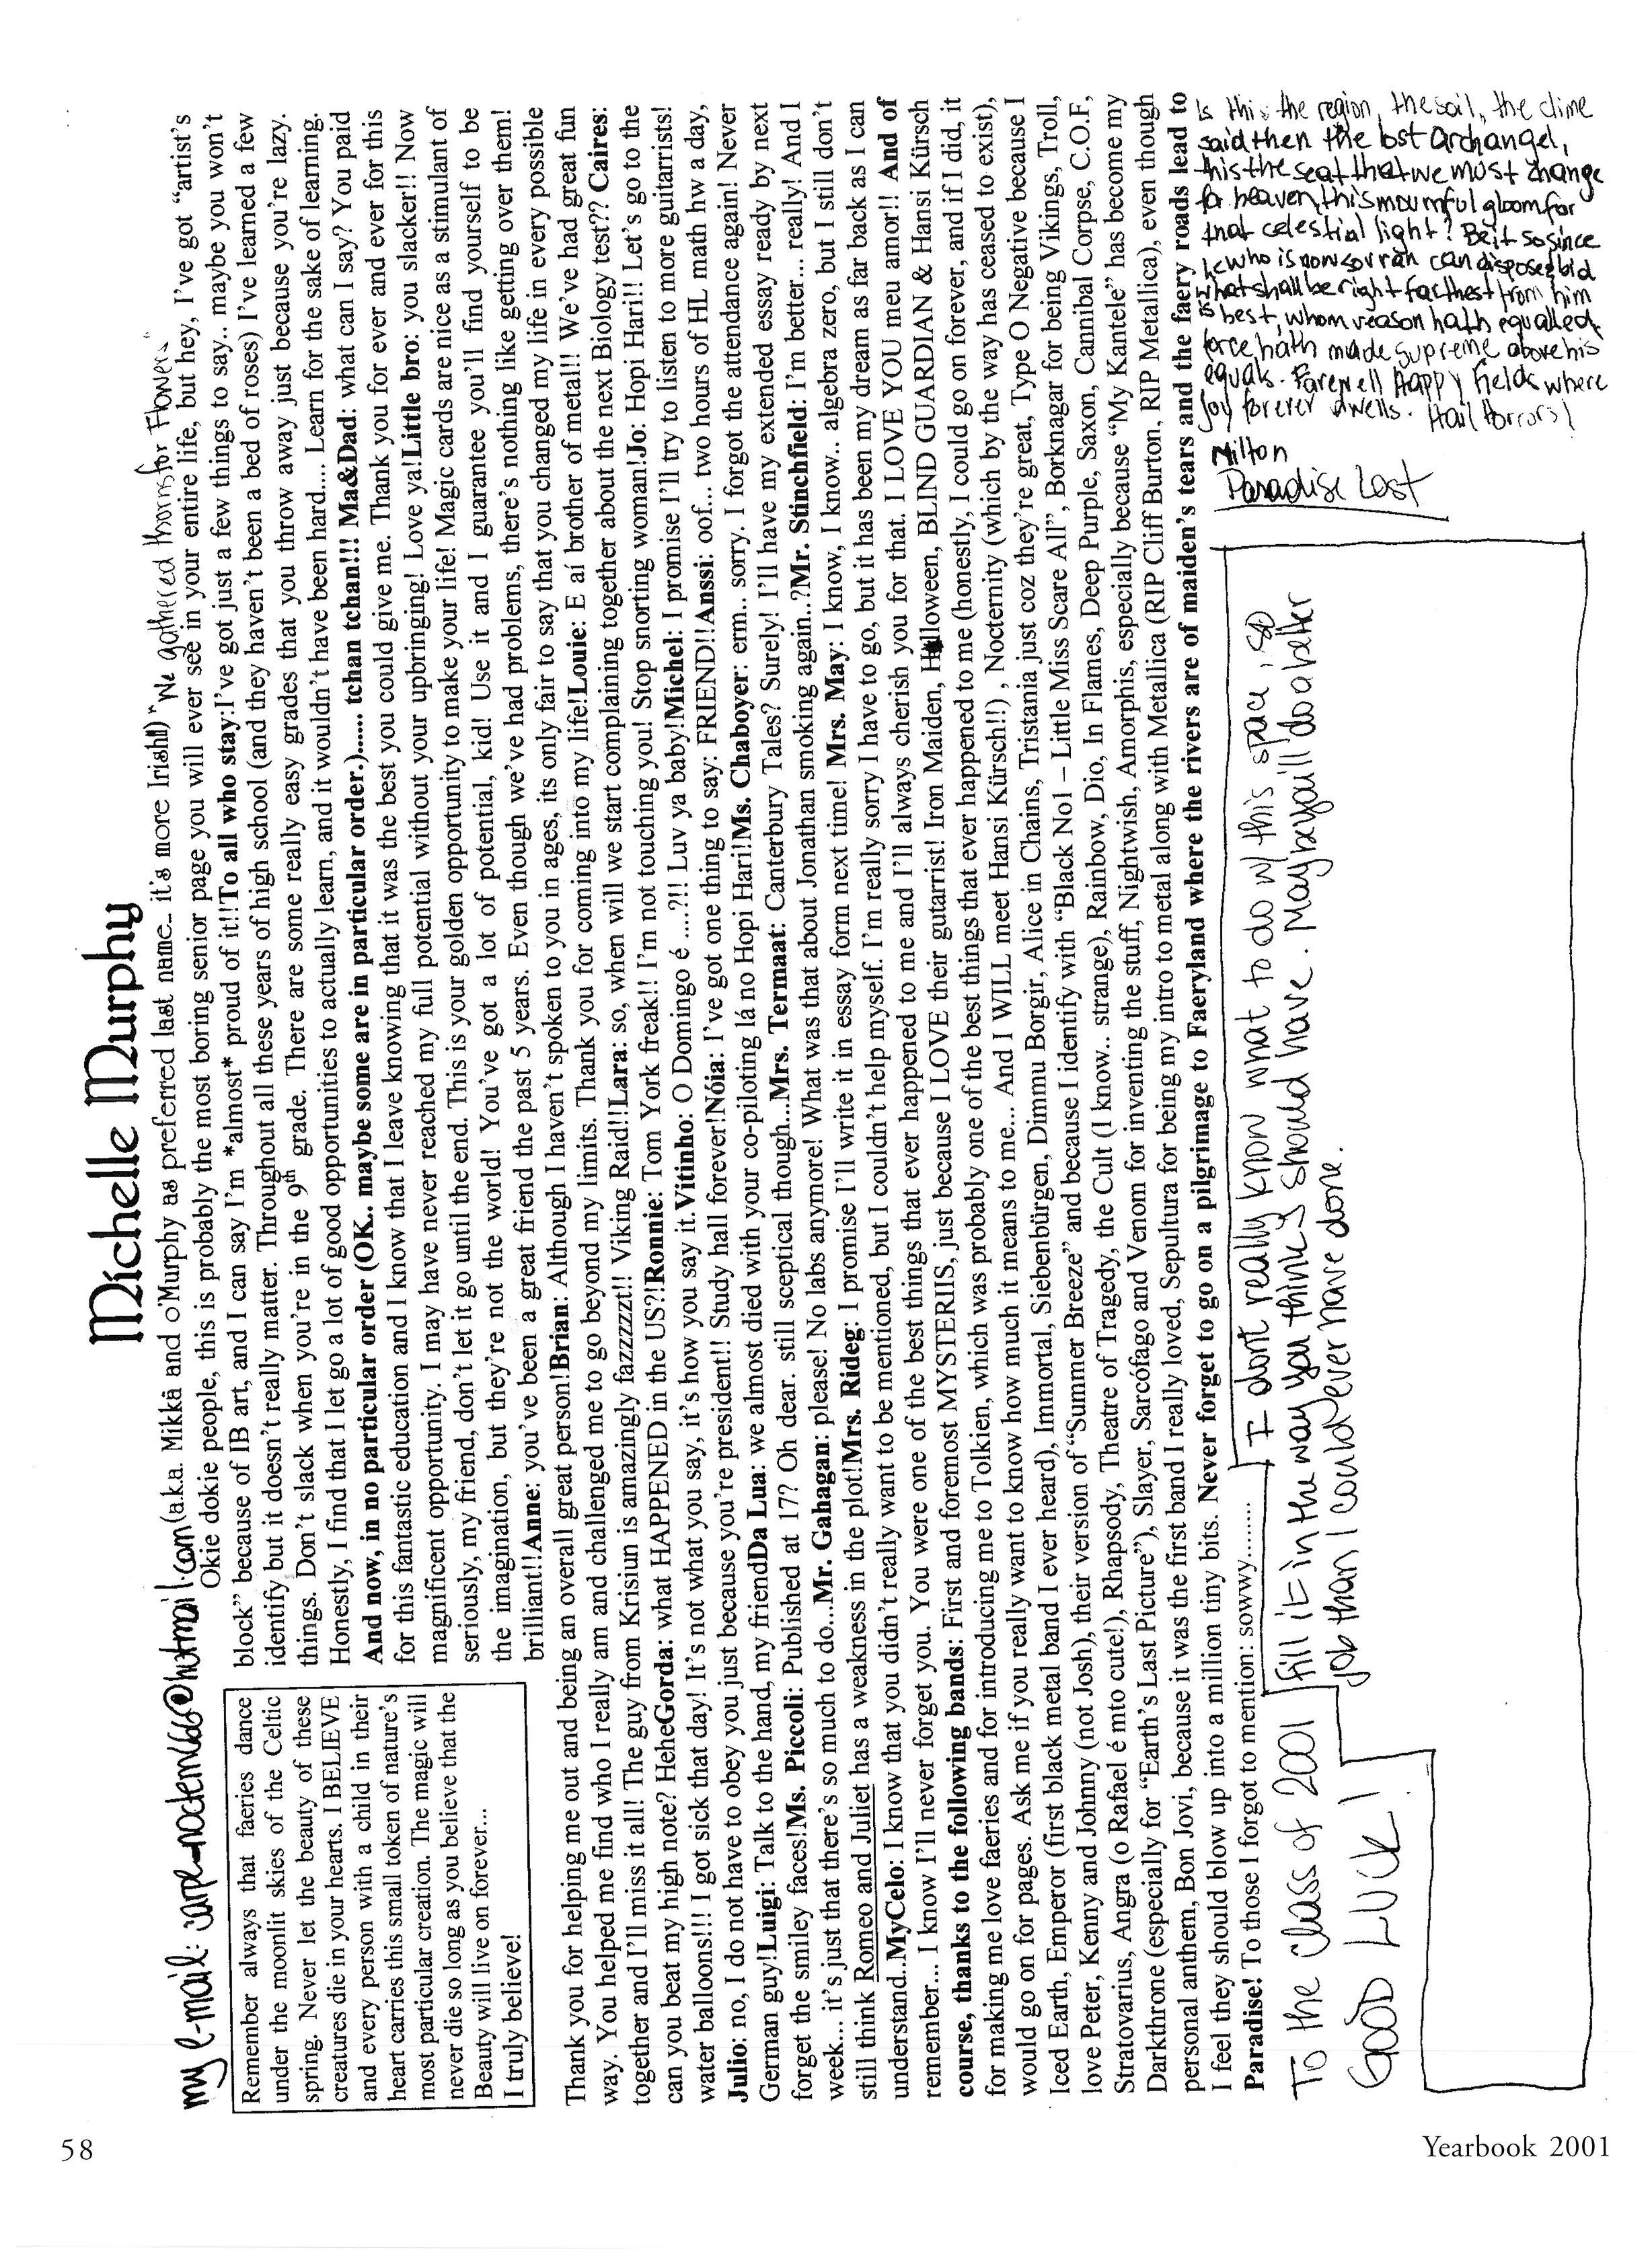 Michelle Murphy
my e-mail: carpe_noctem666@hotmail.com (a.k.a. Mikka and o'Murphy as preferred last name.. it's more Irish!!) "We gathered thorns for Flowers"
Remember always that faeries dance
under the moonlit skies of the Celtic
spring. Never let the beauty of these
creatures die in your hearts. I BELIEVE
and every person with a child in their
heart carries this small token of nature's
most particular creation. The magic will
never die so long as you believe that the
Beauty will live on forever...
I truly believe!
Okie dokie people, this is probably the most boring senior page you will ever see in your entire life, but hey, I've got "artist's
block" because of IB art, and I can say I'm *almost* proud of it!!To all who stay:I've got just a few things to say.. maybe you won't
identify but it doesn't really matter. Throughout all these years of high school (and they haven't been a bed of roses) I've learned a few
things. Don't slack when you're in the 9th grade. There are some really easy grades that you throw away just because you're lazy.
Honestly, I find that I let go a lot of good opportunities to actually learn, and it wouldn't have been hard.... Learn for the sake of learning.
And now, in no particular order (OK.. maybe some are in particular order.)..... tchan tchan!!! Ma&Dad: what can I say? You paid
for this fantastic education and I know that I leave knowing that it was the best you could give me. Thank you for ever and ever for this
magnificent opportunity. I may have never reached my full potential without your upbringing! Love ya!Little bro: you slacker!! Now
seriously, my friend, don't let it go until the end. This is your golden opportunity to make your life! Magic cards are nice as a stimulant of
the imagination, but they're not the world! You've got a lot of potential, kid! Use it and I guarantee you'll find yourself to be
brilliant!!Anne: you've been a great friend the past 5 years. Even though we've had problems, there's nothing like getting over them!
Thank you for helping me out and being an overall great person!Brian: Although I haven't spoken to you in ages, its only fair to say that you changed my life in every possible
way. You helped me find who I really am and challenged me to go beyond my limits. Thank you for coming into my life!Louie: E aí brother of metal!! We've had great fun
together and I'll miss it all! The guy from Krisiun is amazingly fazzzzzt!! Viking Raid!!Lara: so, when will we start complaining together about the next Biology test?? Caires:
can you beat my high note? HeheGorda: what HAPPENED in the US?!Ronnie: Tom York freak!! I'm not touching you! Stop snorting woman!Jo: Hopi Hari!! Let's go to the
water balloons!!! I got sick that day! It's not what you say, it's how you say it.Vitinho: O Domingo é ....?!! Luv ya baby!Michel: I promise I'll try to listen to more guitarrists!
Julio: no, I do not have to obey you just because you're president!! Study hall forever!Nóia: I've got one thing to say: FRIEND!!Anssi: oof... two hours of HL math hw a day,
German guy!Luigi: Talk to the hand, my friendDa Lua: we almost died with your co-piloting lá no Hopi Hari!Ms. Chaboyer: erm.. sorry. I forgot the attendance again! Never
forget the smiley faces!Ms. Piccoli: Published at 17? Oh dear. still sceptical though...Mrs. Termaat: Canterbury Tales? Surely! I'll have my extended essay ready by next
week... it's just that there's so much to do...Mr. Gahagan: please! No labs anymore! What was that about Jonathan smoking again..?Mr. Stinchfield: I'm better... really! And I
still think Romeo and Juliet has a weakness in the plot!Mrs. Rideg: I promise I'll write it in essay form next time! Mrs. May: I know, I know.. algebra zero, but I still don't
understand..MyCelo: I know that you didn't really want to be mentioned, but I couldn't help myself. I'm really sorry I have to go, but it has been my dream as far back as I can
remember... I know I'll never forget you. You were one of the best things that ever happened to me and I'll always cherish you for that. I LOVE YOU meu amor!! And of
course, thanks to the following bands: First and foremost MYSTERIIS, just because I LOVE their gutarrist! Iron Maiden, Halloween, BLIND GUARDIAN & Hansi Kürsch
for making me love faeries and for introducing me to Tolkien, which was probably one of the best things that ever happened to me (honestly, I could go on forever, and if I did, it
would go on for pages. Ask me if you really want to know how much it means to me... And I WILL meet Hansi Kürsch!!) , Nocternity (which by the way has ceased to exist),
Iced Earth, Emperor (first black metal band I ever heard), Immortal, Siebenbürgen, Dimmu Borgir, Alice in Chains, Tristania just coz they're great, Type O Negative because I
love Peter, Kenny and Johnny (not Josh), their version of "Summer Breeze" and because I identify with "Black No1 – Little Miss Scare All", Borknagar for being Vikings, Troll,
Stratovarius, Angra (o Rafael é mto cute!), Rhapsody, Theatre of Tragedy, the Cult (I know.. strange), Rainbow, Dio, In Flames, Deep Purple, Saxon, Cannibal Corpse, C.O.F,
Darkthrone (especially for "Earth's Last Picture"), Slayer, Sarcófago and Venom for inventing the stuff, Nightwish, Amorphis, especially because "My Kantele" has become my
personal anthem, Bon Jovi, because it was the first band I really loved, Sepultura for being my intro to metal along with Metallica (RIP Cliff Burton, RIP Metallica), even though
I feel they should blow up into a million tiny bits. Never forget to go on a pilgrimage to Faeryland where the rivers are of maiden's tears and the faery roads lead to
Paradise! To those I forgot to mention: sowwy.......
To the class of 2001
GOOD LUCK!
I dont really know what to do w/ this space, so
fill it in the way you think I should have. Maybe you'll do a better
job than I could ever have done.
Is this the region, the soil, the clime
said then the lost Archangel,
this the seat that we must change
for heaven, this mournful gloom for
that celestial light? Be it so since
he who is now sovran can dispose & bid
what shall be right farthest from him
is best, whom reason hath equalled
force hath made supreme above his
equals. Farewell Happy Fields where
Joy forever dwells. Hail Horrors!
Milton
Paradise Lost
58
Yearbook 2001